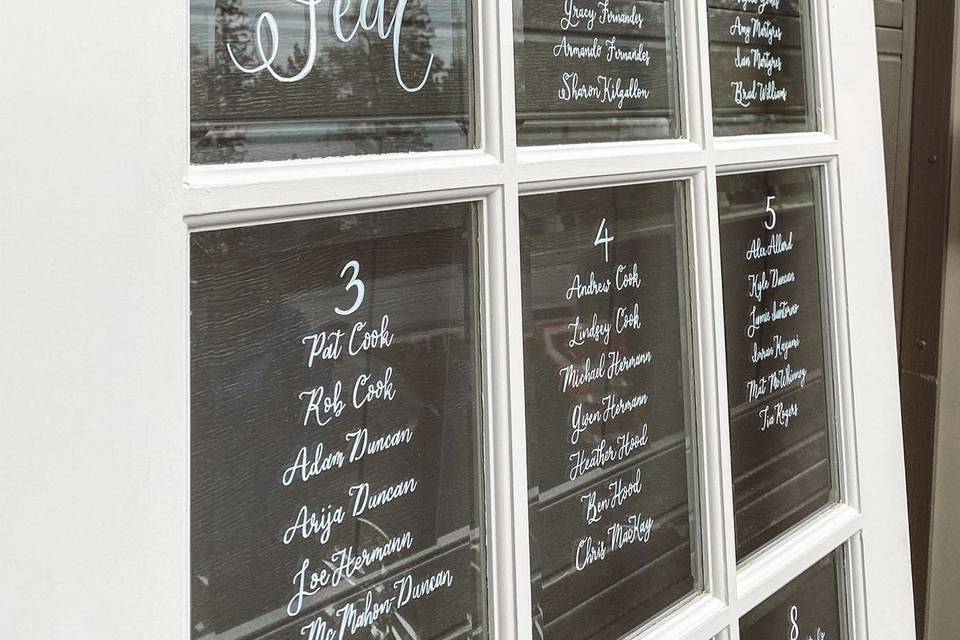 Gracy Fernandes
Armando Fernandes
Sharon Kilgallon
Amy Martyres
Ian Martyres
Brad William
3
Pat Cook
Rob Cook
Adam Duncan
Arija Duncan
Loe Hermann
Mc Mahon-Duncan
4
Andrew Cook
Lindsey Cook
Michael Hermann
Gwen Hermann
Heather Hood
Ben Hood
Chris MacKay
5
Alex Allard
Kyle Duncan
Jamie
Imran Kayumi
Mat McWhinney
Tia Rogers
8